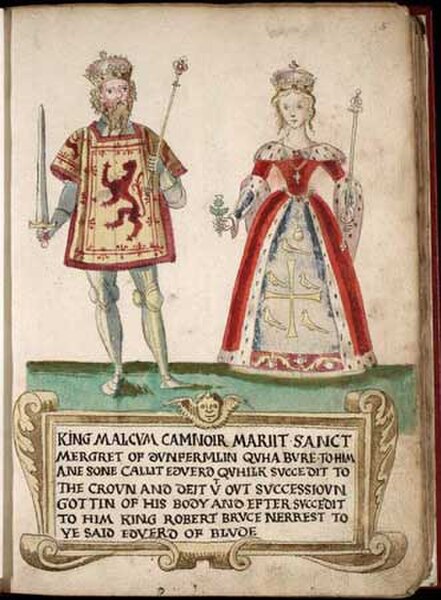 KING MALCVM CAMNOIR MARIIT SANCT
MERGRET OF DVNFERMLIN QVHA BVRE TO HIM
ANE SONE CALLIT EDVERD QVHILK SVCCEDIT TO
THE CROVN AND DEIT VT OVT SVCCESSIOVN
GOTTIN OF HIS BODY AND EFTER SVCCEDIT
TO HIM KING ROBERT BRVCE NERREST TO
YE SAID EDVERD OF BLVDE